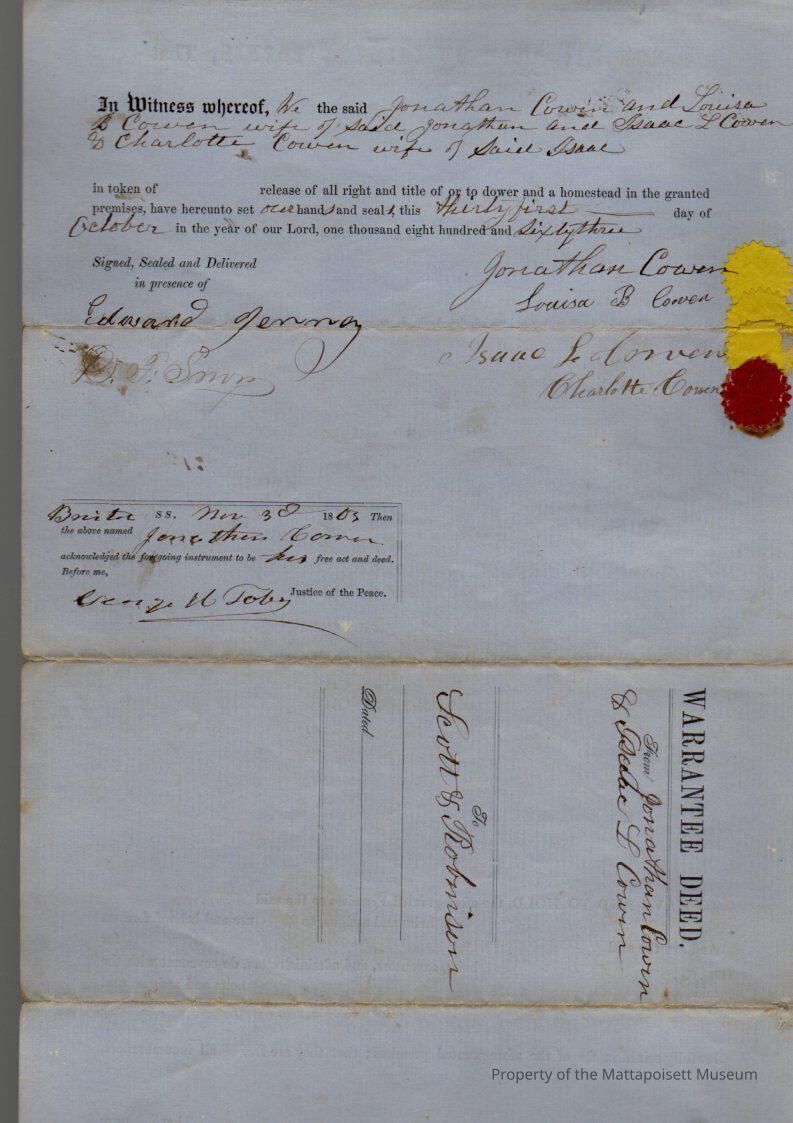 In Witness whereof, We the said Jonathan Cowen and Louisa
B Cowen wife of said Jonathan and Isaac L Cowen
& Charlotte Cowen wife of Said Isaac
in token of release of all right and title of or to dower and a homestead in the granted
premises, have hereunto set our hands and seals, this thirty first day of
October in the year of our Lord, one thousand eight hundred and sixty three
Signed, Sealed and Delivered
in presence of
Jonathan Cowen
Louisa B Cowen
Edward Jenney
Isaac L Cowen
Charlotte Cowen
Bristol ss. Nov 3d 1863 Then
the above named Jonathan Cowen
acknowledged the foregoing instrument to be his free act and deed.
Before me,
George H Toby Justice of the Peace.
WARRANTEE DEED.
From Jonathan Cowin
& Isaac L Cowin
To
Scott & Robinson
Dated
Property of the Mattapoisett Museum